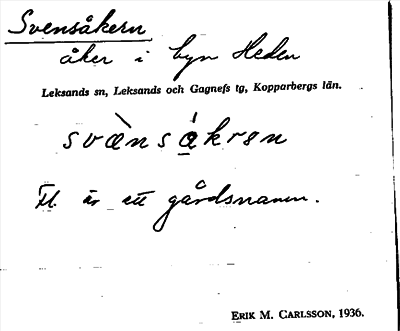 Svensåkern
åker i byn Heden
Leksands sn, Leksands och Gagnefs tg, Kopparbergs län.
svæ̀nsá̲krən
är ett gårdsnamn.
ERIK M. CARLSSON, 1936.